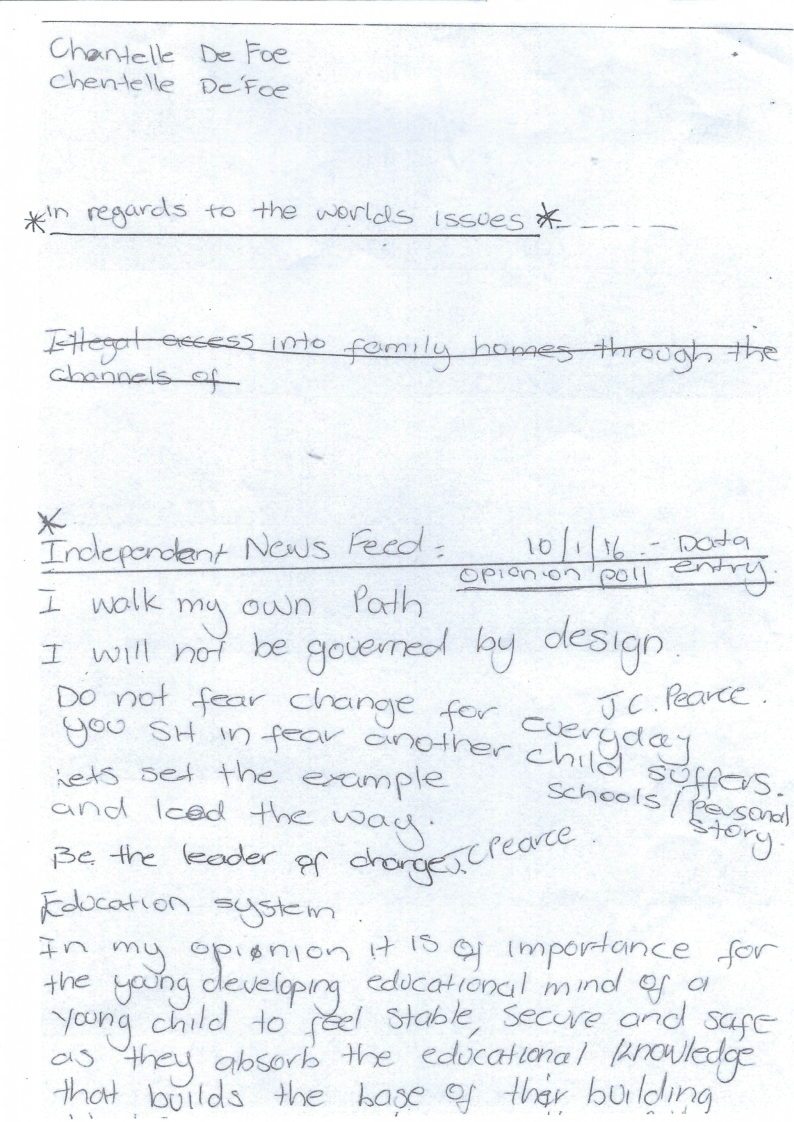 Chantelle De'Foe
Chentelle De'Foe
*in regards to the worlds issues *-----
Illegal access into family homes through the
channels of
*
Independent News Feed: 10/1/16 - Data
opionion poll entry.
I walk my own Path
I will not be governed by design.
Do not fear change for J C. Pearce.
you sit in fear another everyday
child suffers.
lets set the example schools / personal
story.
and lead the way.
Be the leader of change. JC Pearce.
Education system
In my opionion it is of importance for
the young developing educational mind of a
young child to feel stable, secure and safe
as they absorb the educational knowledge
that builds the base of their building